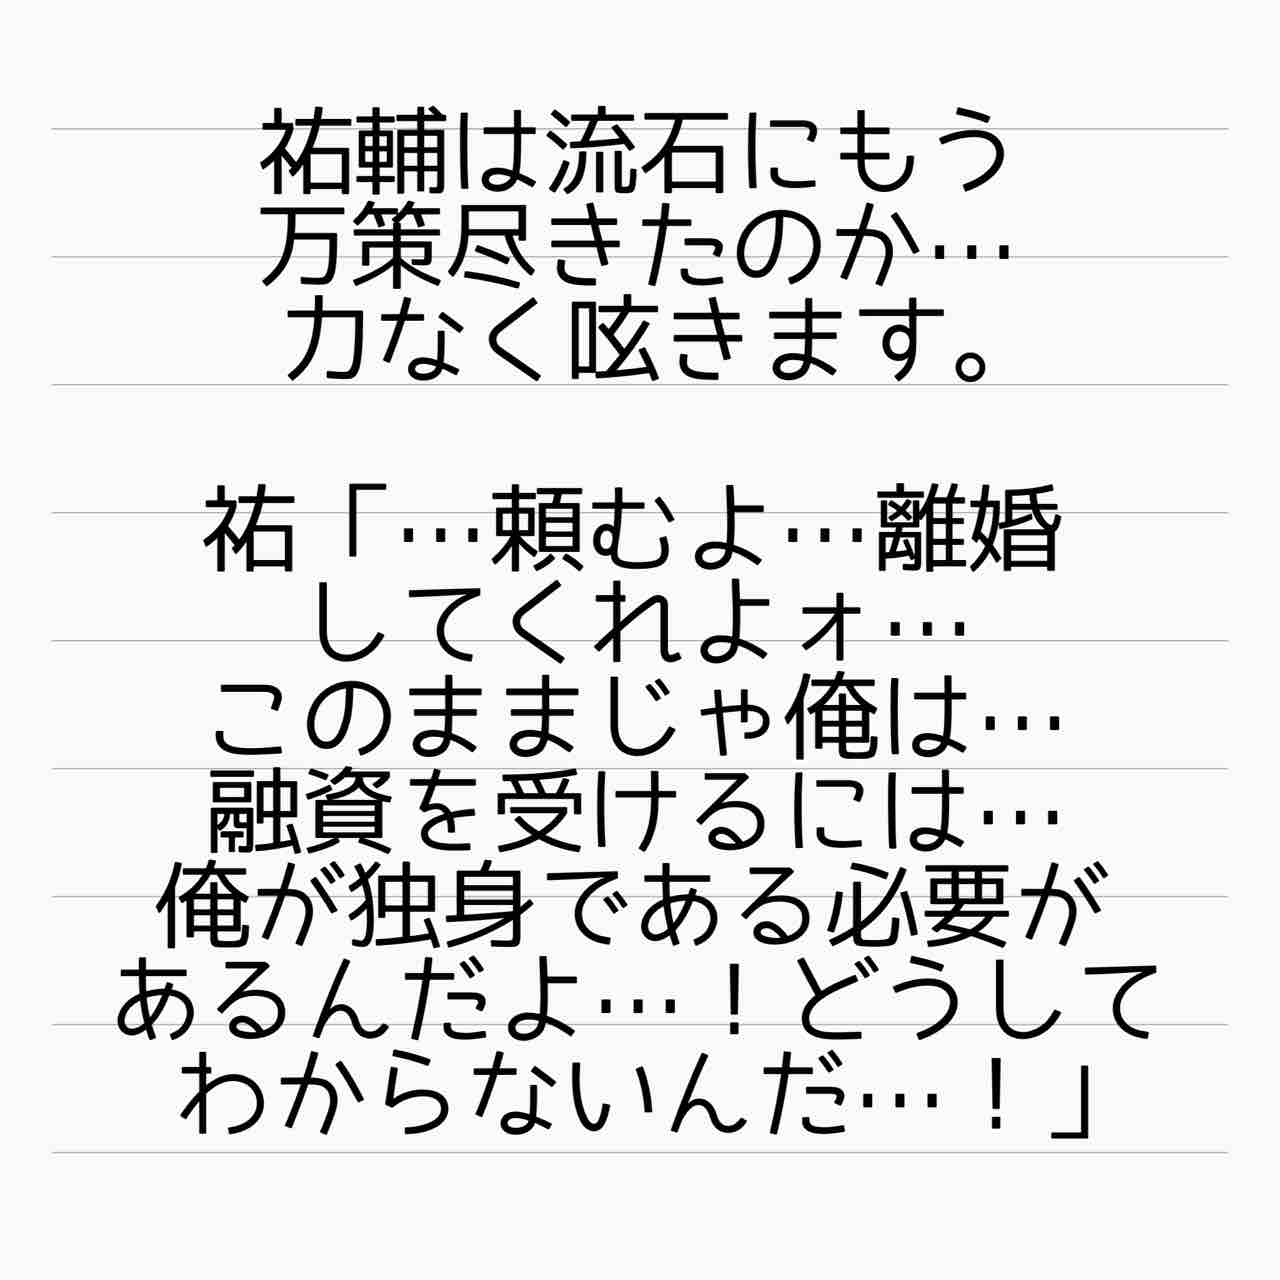 祐輔は流石にもう
万策尽きたのか…
力なく呟きます。
祐「…頼むよ…離婚
してくれよォ…
このままじゃ俺は…
融資を受けるには…
俺が独身である必要が
あるんだよ…！どうして
わからないんだ…！」